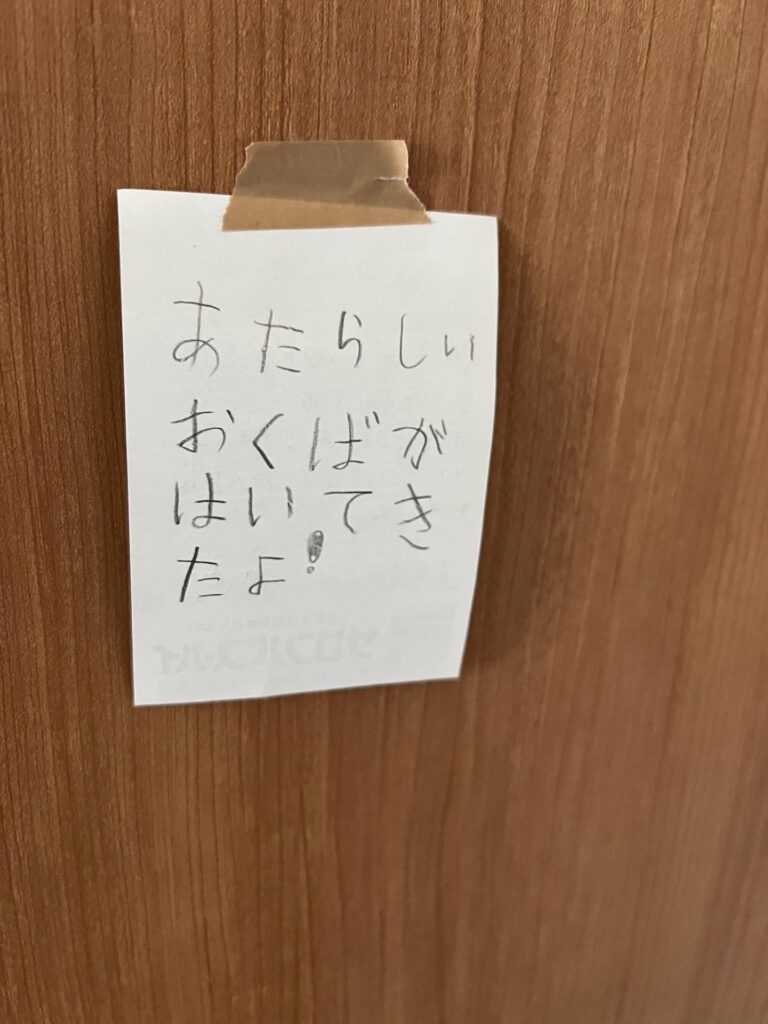 あたらしい
おくばが
はいてき
たよ!